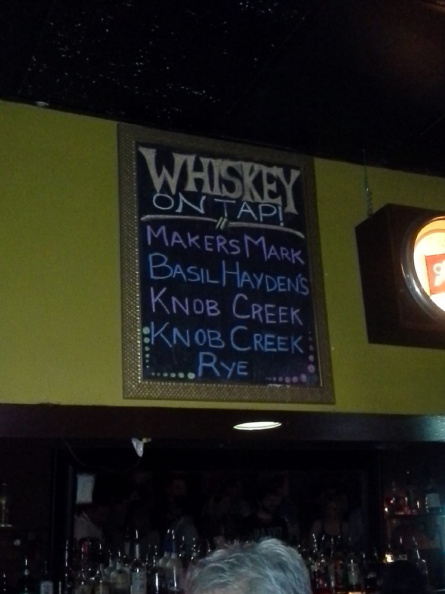 WHISKEY
ON TAP!
MAKERS MARK
BASIL HAYDEN'S
KNOB CREEK
KNOB CREEK
RYE